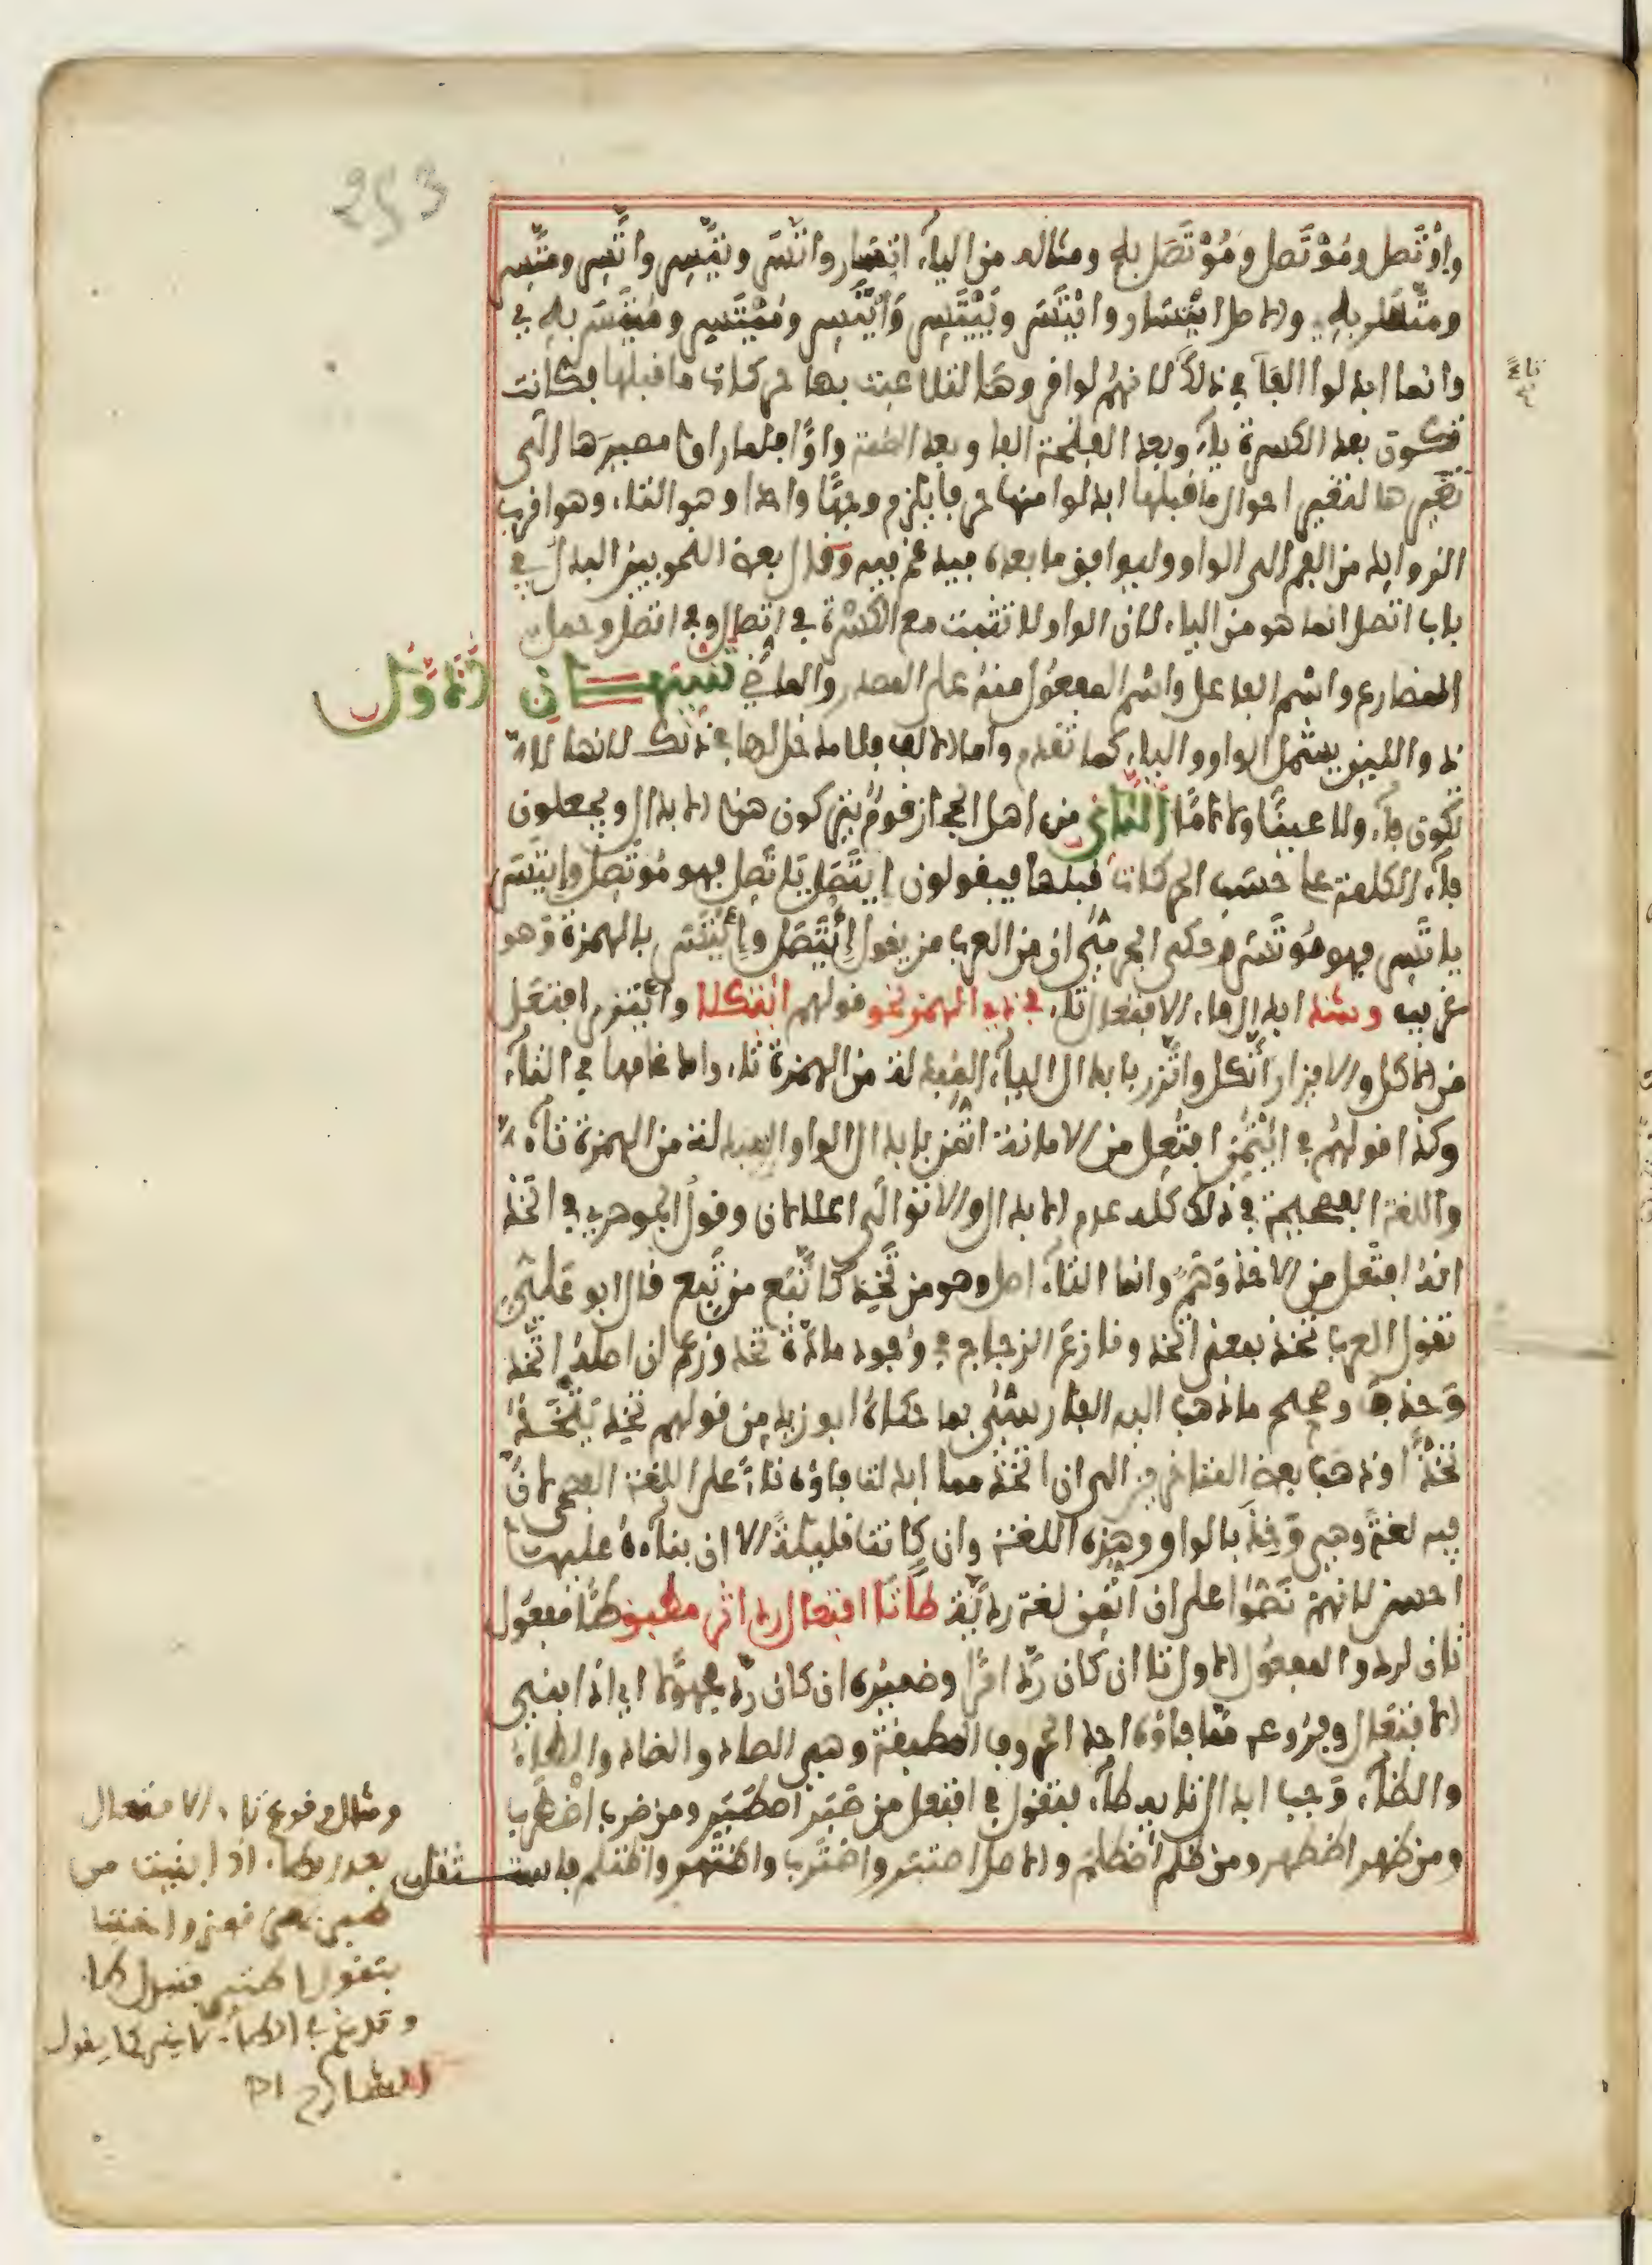 253
واوْتَصل ومُوْتَصل ومُوْتَصَل به ومثاله من الياء اتسار واتَّسَر ويتَّسِر واتَّسِر ومتَّسِر
ومتَّسَر به والاصل ايتسار وايْتَسَر ويَيْتَسِر وايْتَسِر ومُيْتَسِر ومُيْتَسَر به
وانما ابدلوا الفاء في ذلك لانهم لو اقروها لتلاعبت بها حركات ما قبلها فكانت
تكون بعد الكسرة ياء وبعد الفتحة الفا وبعد الضمة واوًا فلما راوا مصيرها الى
تغيرها لتغير احوال ما قبلها ابدلوا منها حرفا يلزم وجهًا واحدا وهو التاء وهو اقرب
الزوايد من الفم الى الواو وليوافق ما بعده فيدغم فيه وقال بعض النحويين البدل في
باب اتصل انما هو من الياء لان الواو لا تثبت مع الكسرة في اتصال وفي اتصل وحمل
المضارع واسم الفاعل واسم المفعول منه على المصدر والماضي تنبيهــــان الاول
ذو اللين يشمل الواو والياء كما تقدم واما الالف فلا مدخل لها في ذلك لانها لا
تكون فاء ولا عينًا ولا لامًا الثاني من اهل الحجاز قوم يتركون هذا الابدال ويجعلون
فاء الكلمة على حسب الحركات قبلها فيقولون ايتَصَل يَاتَصِل فهو مُوتَصِل وايتَسَر
ياتَسِر فهو مُوتَسِر وحكى الجرمي ان من العرب من يقول اِئْتَصَل واِئْتَسَر بالهمزة وهو
غريب وشذ ابدال فاء الافتعال تاء في ذي الهمز نحو قولهم ائتكلا وائتزر افتعل
من الاكل والازار اتَّكل واتَّزر بابدال الياء المبدلة من الهمزة تاء وادغامها في التاء
وكذا قولهم في ائتمن افتعل من الامانة اتمن بابدال الواو المبدلة من الهمزة تاء
واللغة الفصيحة في ذلك كله عدم الابدال والا توالى اعلالان وقول الجوهري في اتخذ
انه افتعل من الاخذ وَهَم وانما التاء اصل وهو من تَخِذ كاتَّبع من تَبِع قال ابو علي
تقول العرب تخذ بمعنى اتخذ ونازع الزجاج في وجود مادة تخذ وزعم ان اصله اتخذ
وحذف وصحح ما ذهب اليه الفارسي بما حكاه ابو زيد من قولهم تخِذ يتْخَذ
تخذًا وذهب بعض المتاخرين الى ان اتخذ مما ابدلت فاؤه تاءً على اللغة الفصحى لان
فيه لغة وهي وَخِذَ بالواو وهذه اللغة وان كانت قليلة الا ان بناءه عليها
احسن لانهم نصوا على ان اتمن لغة رديَّة طا تا افتعال رد اثر مطبق طا مفعول
ثان لرد والمفعول الاول تا ان كان رد امرًا وضميره ان كان رد مجهولا اي اذا بني
الافتعال وفروعه مما فاؤه احد الحروف المطبقة وهي الصاد والضاد والطاء
والظاء وجب ابدال تايه طاء فتقول في افتعل من صَبَر اصطَبَر ومن ضرب اضطرب
ومن ظهر اظطهر ومن ظلم اظطلم والاصل اصتبر واضترب واظتهر واظتلم فاستثقل
ومثل وقوع تاء الافتعال
بعد الطاء اذا بنيت من
وقد تدغم في الطاء كما يقول
الشارح اه